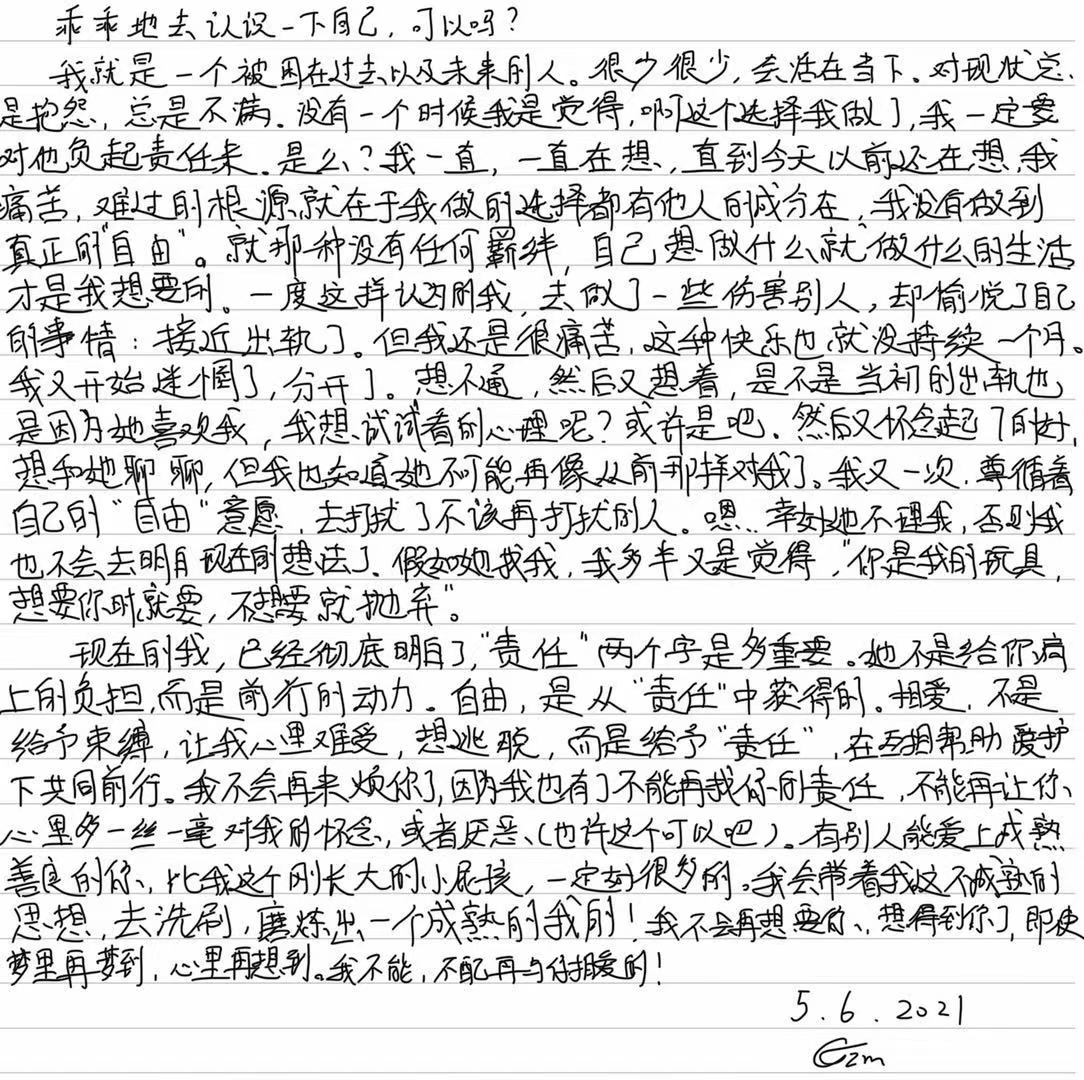 乖乖地去认识一下自己，可以吗？
我就是一个被困在过去以及未来的人。很少很少，会活在当下。对现状总
是抱怨，总是不满。没有一个时候我是觉得，啊这个选择我做了，我一定要
对他负起责任来。是么？我一直，一直在想，直到今天以前还在想，我
痛苦，难过的根源就在于我做的选择都有他人的成分在，我没有做到
真正的"自由"。就那种没有任何羁绊，自己想做什么就做什么的生活
才是我想要的。一度这样认为的我，去做了一些伤害别人，却愉悦了自己
的事情：接近出轨了。但我还是很痛苦，这种快乐也就没持续一个月。
我又开始迷惘了，分开了。想不通，然后又想着，是不是当初的出轨也
是因为她喜欢我，我想试试看的心理呢？或许是吧。然后又怀念起了的好，
想和她聊聊，但我也知道她不可能再像从前那样对我了。我又一次，尊循着
自己的"自由"意愿，去打扰了不该再打扰的人。嗯…幸好她不理我，否则我
也不会去明白现在的想法了。假如她找我，我多半又是觉得，"你是我的玩具，
想要你时就要，不想要就抛弃"。
现在的我，已经彻底明白了，"责任"两个字是多重要。她不是给你肩
上的负担，而是前行的动力。自由，是从"责任"中获得的。相爱，不是
给予束缚，让我心里难受，想逃脱，而是给予"责任"，在互相帮助爱护
下共同前行。我不会再来烦你了，因为我也有了不能再找你的责任，不能再让你
心里多一丝一毫对我的怀念，或者厌恶（也许这个可以吧）。有别人能爱上成熟
善良的你，比我这个刚长大的小屁孩，一定好很多的。我会带着我这不成熟的
思想，去洗刷，磨炼出一个成熟的我的！我不会再想要你，想得到你了，即使
梦里再梦到，心里再想到。我不能，不配再与你相爱的！
5.6.2021